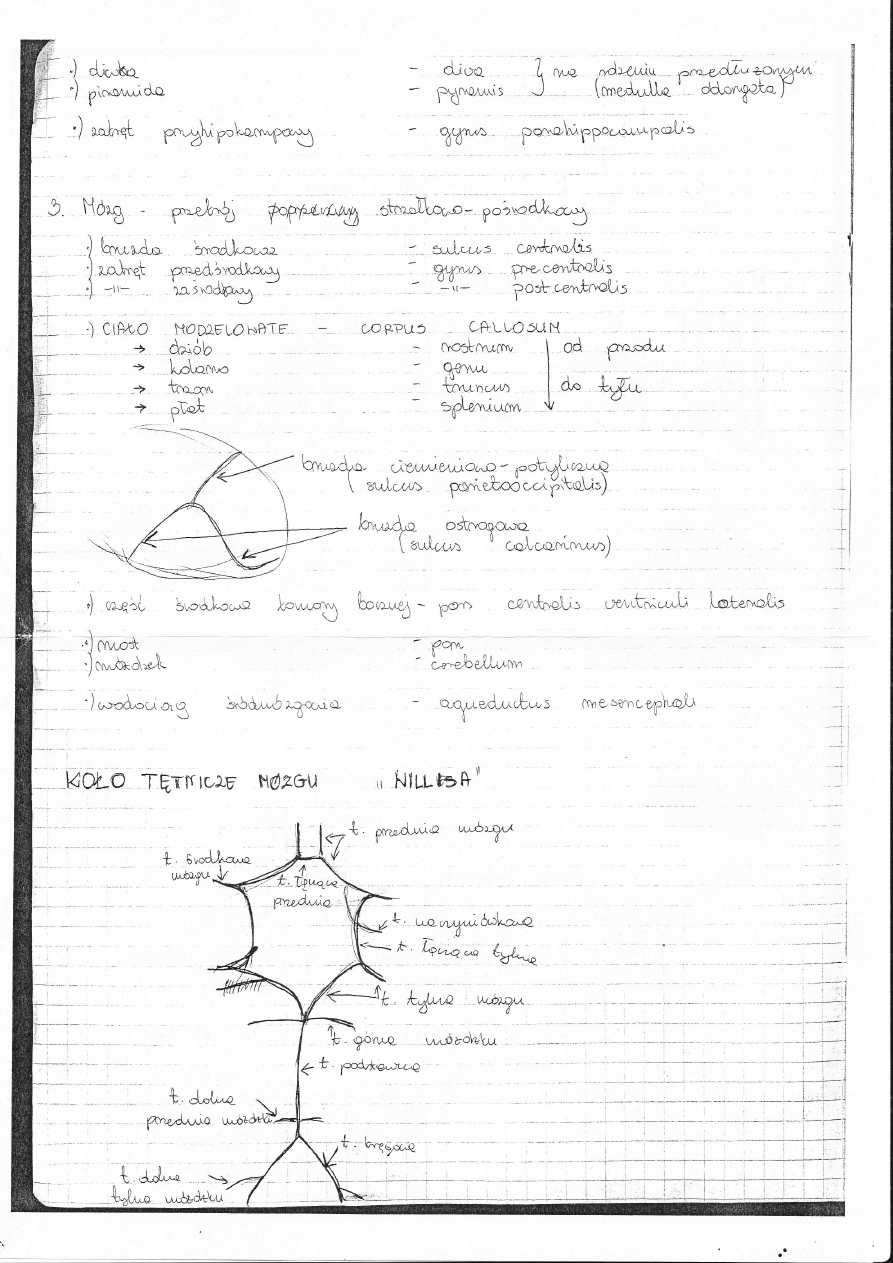 ·) oliwka - oliva } na rdzeniu przedłużonym
·) piramida - pyramis (medulla oblongata)
·) zakręt przyhipokampowy - gyrus parahippocampalis
3. Mózg - przekrój strzałkowo-pośrodkowy
·) bruzda środkowa - sulcus centralis
·) zakręt przedśrodkowy - gyrus precentralis
·) -11- zaśrodkowy - -11- postcentralis
·) CIAŁO MODZELOWATE - CORPUS CALLOSUM
→ dziób - rostrum od przodu
→ kolano - genu
→ trzon - truncus do tyłu
→ płat - splenium
bruzda ciemieniowo-potyliczna
(sulcus parietooccipitalis)
bruzda ostrogowa
(sulcus calcarinus)
·) część środkowa komory bocznej - pars centralis ventriculi lateralis
·) most - pon
·) móżdżek - cerebellum
·) wodociąg śródmózgowia - aqueductus mesencephali
KOŁO TĘTNICZE MÓZGU „WILLISA"
t. przednia mózgu
t. środkowa
mózgu
t. łącząca
przednia
t. naczyniówkowa
t. łącząca tylna
t. tylna mózgu
t. górna móżdżku
t. podstawna
t. dolna
przednia móżdżku
t. kręgowa
t. dolna
tylna móżdżku